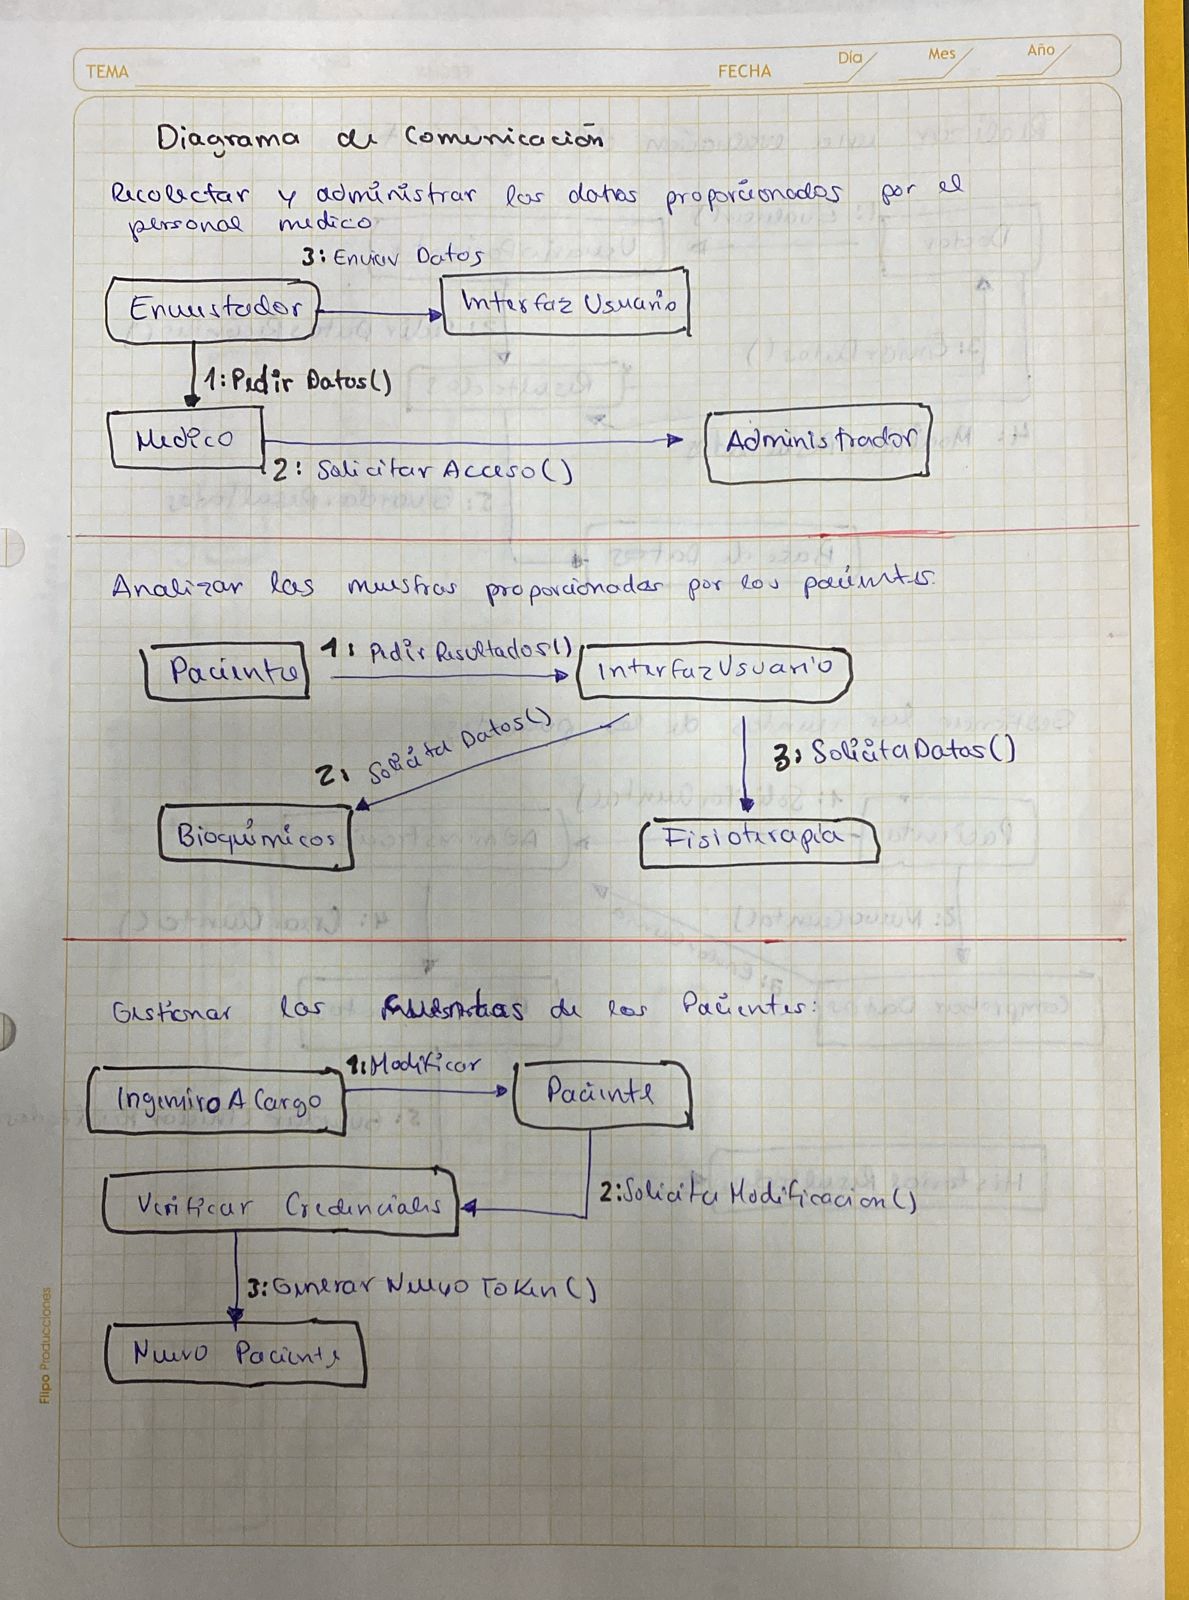 TEMA FECHA Día Mes Año
Diagrama de Comunicación
Recolectar y administrar los datos proporcionados por el
personal medico
3: Enviar Datos
Encuestador
Interfaz Usuario
1: Pedir Datos()
Medico
Administrador
2: Solicitar Acceso()
Analizar las muestras proporcionadas por los pacientes.
1: Pedir Resultados()
Paciente
Interfaz Usuario
2: Solicita Datos()
3: Solicita Datos()
Bioquímicos
Fisioterapia
Gestionar las de los Pacientes:
1: Modificar
Ingeniero A Cargo
Paciente
2: Solicita Modificacion()
Verificar Credenciales
3: Generar Nuevo Token()
Nuevo Paciente
Flipo Producciones